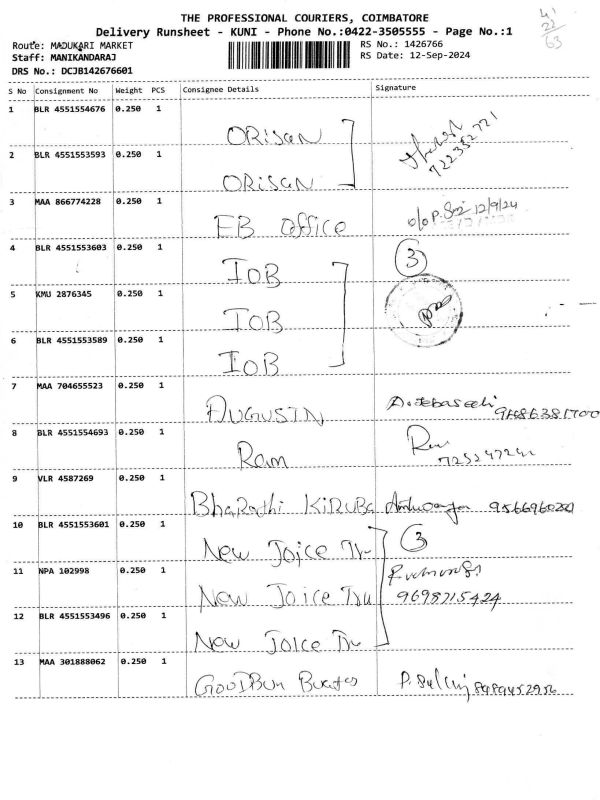 THE PROFESSIONAL COURIERS, COIMBATORE
Delivery Runsheet - KUNI - Phone No.:0422-3505555 - Page No.:1
41
22
63
Route: MADUKARI MARKET
RS No.: 1426766
Staff: MANIKANDARAJ
RS Date: 12-Sep-2024
DRS No.: DCJB142676601
S No Consignment No Weight PCS Consignee Details Signature
1 BLR 4551554676 0.250 1 ORiSan
2 BLR 4551553593 0.250 1 ORiSan
3 MAA 866774228 0.250 1 FB office 12/9/24
4 BLR 4551553603 0.250 1 IOB 3
5 KMU 2876345 0.250 1 IOB
6 BLR 4551553589 0.250 1 IOB
7 MAA 704655523 0.250 1 AUGUSIN
8 BLR 4551554693 0.250 1 Ram
9 VLR 4587269 0.250 1 BhaRathi KiRUBa
10 BLR 4551553601 0.250 1 New Joice Tr 3
11 NPA 102998 0.250 1 New Joice Tru 9698715424
12 BLR 4551553496 0.250 1 New Joice Tru
13 MAA 301888062 0.250 1 GOODBUN